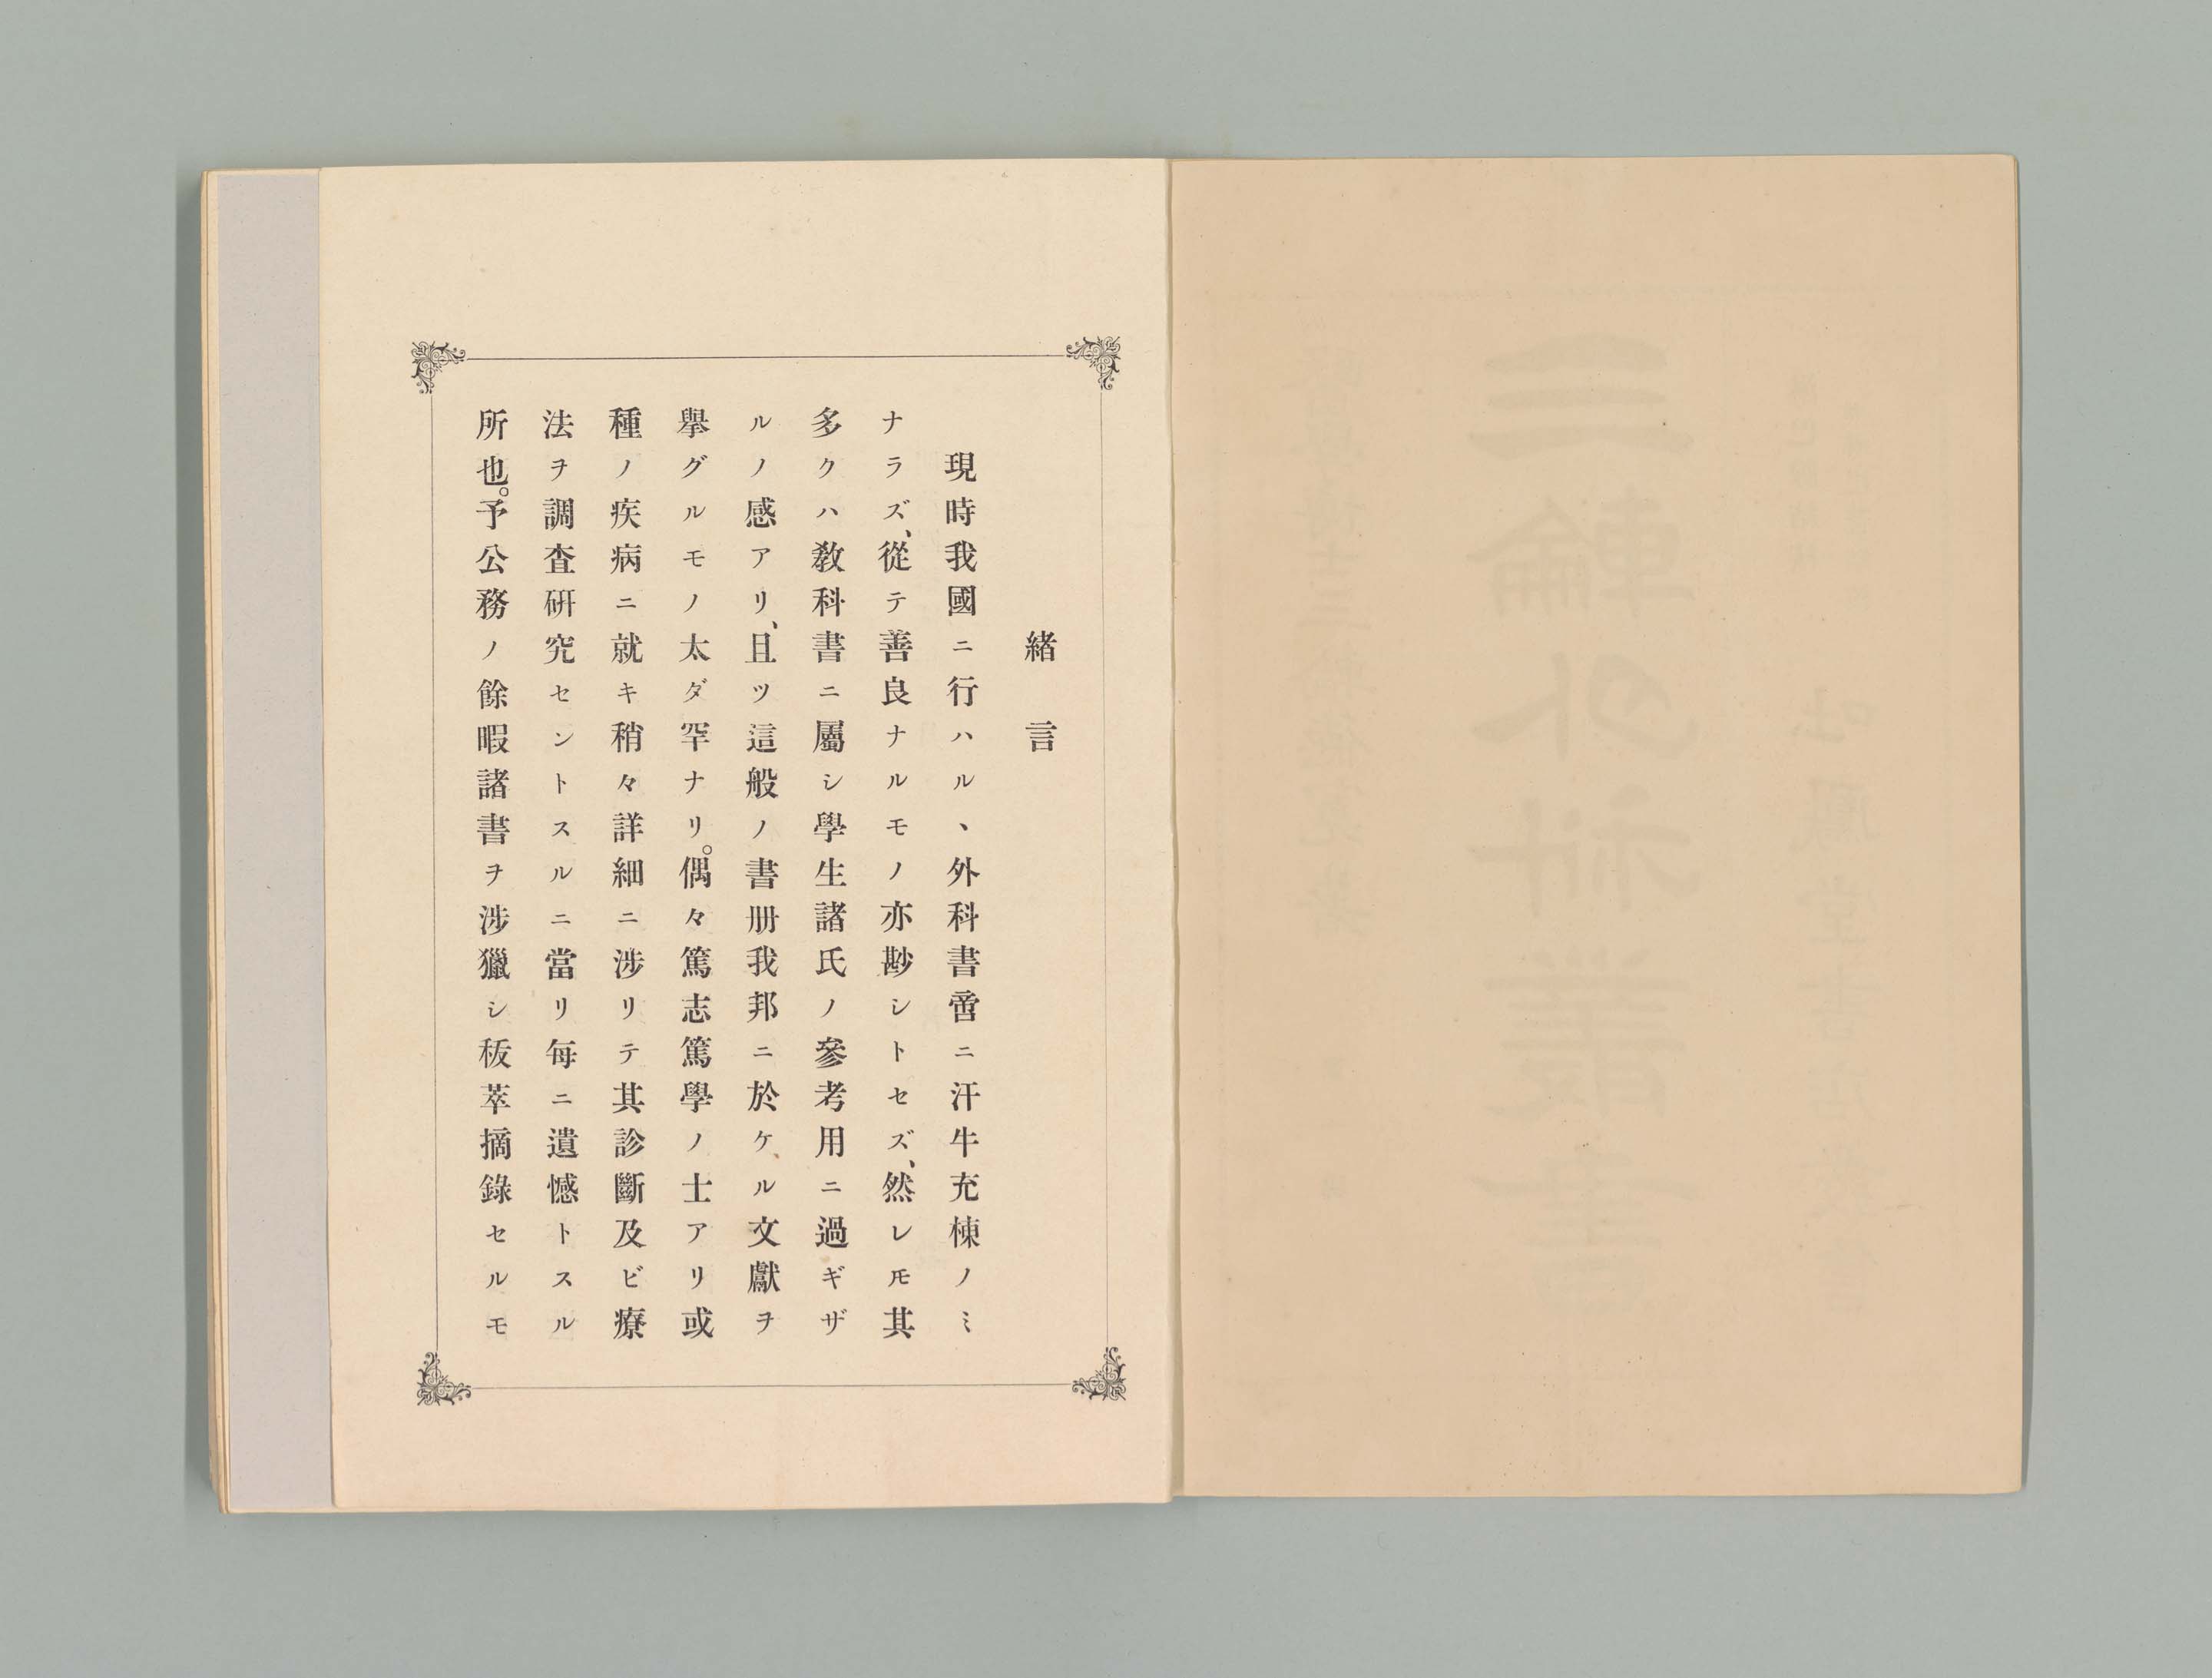 緒言
現時我國ニ行ハル、外科書啻ニ汗牛充棟ノミ
ナラズ、從テ善良ナルモノ亦尠シトセズ、然レ𪜈其
多クハ教科書ニ屬シ學生諸氏ノ參考用ニ過ギザ
ルノ感アリ、且ツ這般ノ書册我邦ニ於ケル文獻ヲ
擧グルモノ太ダ罕ナリ。偶々篤志篤學ノ士アリ或
種ノ疾病ニ就キ稍々詳細ニ涉リテ其診斷及ビ療
法ヲ調査硏究セントスルニ當リ每ニ遺憾トスル
所也。予公務ノ餘暇諸書ヲ涉獵シ秡萃摘錄セルモ